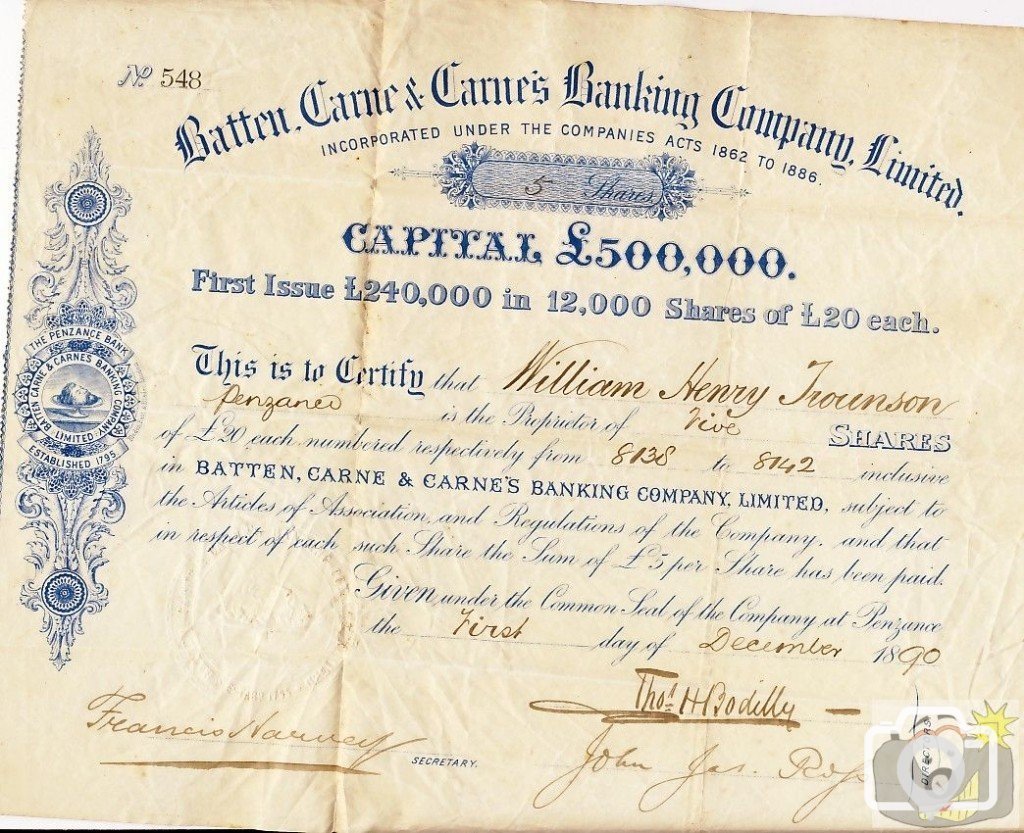 No. 548
Batten, Carne & Carne's Banking Company, Limited.
INCORPORATED UNDER THE COMPANIES ACTS 1862 TO 1886.
5 Shares
CAPITAL £500,000.
First Issue £240,000 in 12,000 Shares of £20 each.
This is to Certify that William Henry Trounson
Penzance is the Proprietor of Five SHARES
of £20 each numbered respectively from 8138 to 8142 inclusive
in BATTEN, CARNE & CARNE'S BANKING COMPANY, LIMITED, subject to
the Articles of Association, and Regulations of the Company, and that
in respect of each such Share the Sum of £5 per Share has been paid.
Given under the Common Seal of the Company at Penzance
the First day of December 1890
Thos. H Bodilly
Francis Harvey
SECRETARY.
John Jas.
DIRECTORS
THE PENZANCE BANK
BATTEN CARNE & CARNES BANKING COMPANY
LIMITED
ESTABLISHED 1795